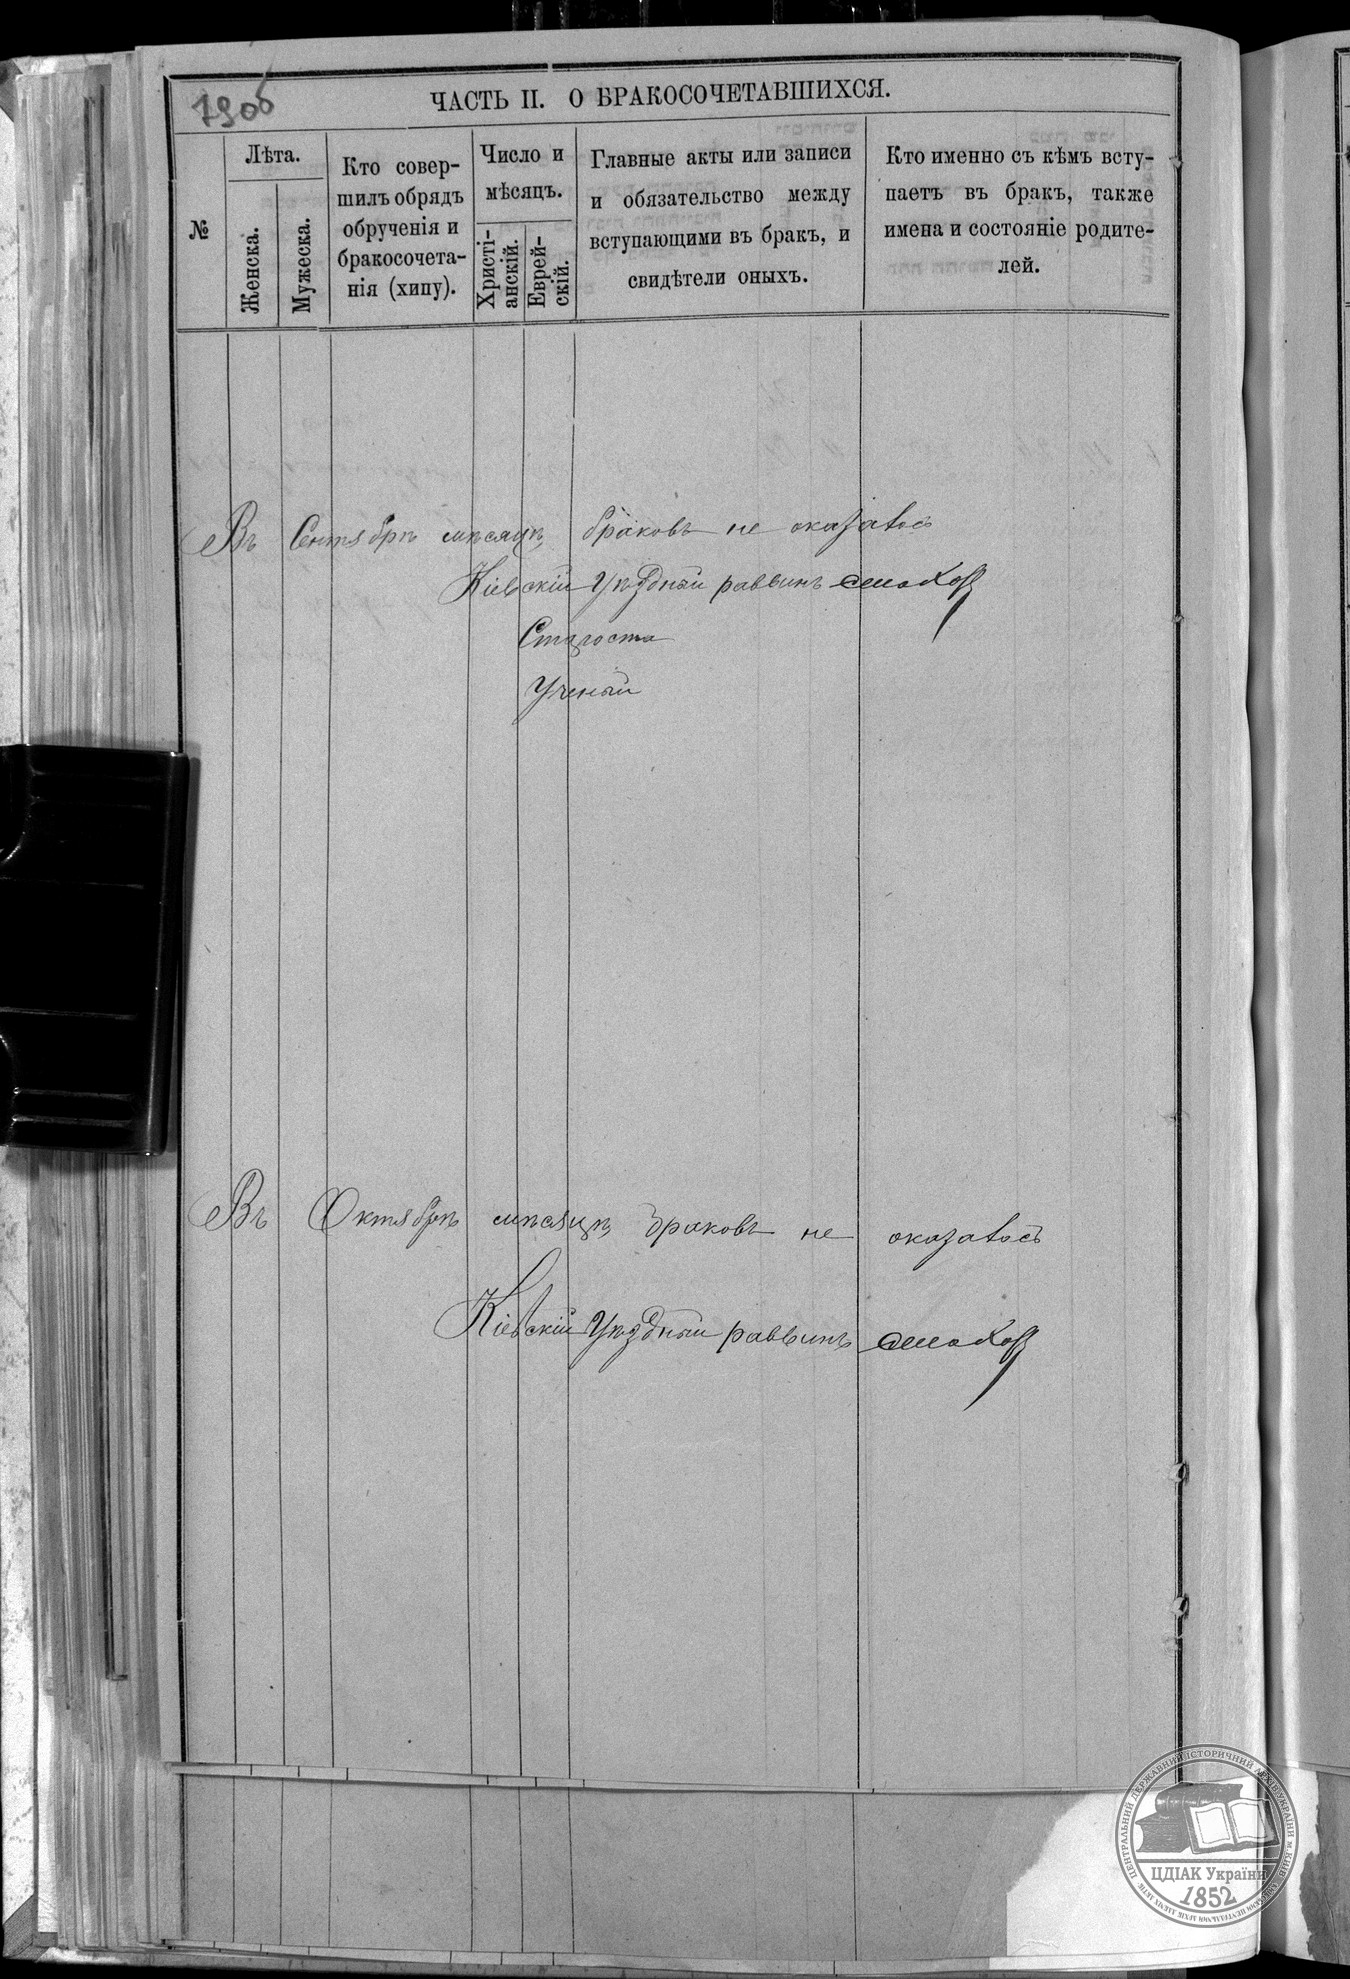 1906
ЧАСТЬ II. О БРАКОСОЧЕТАВШИХСЯ.
№
Лѣта.
Женска.
Мужеска.
Кто совер-
шилъ обрядъ
обрученія и
бракосочета-
нія (хипу).
Число и
мѣсяцъ.
Христі-
анскій.
Еврей-
скій.
Главные акты или записи
и обязательство между
вступающими въ бракъ, и
свидѣтели оныхъ.
Кто именно съ кѣмъ всту-
паетъ въ бракъ, также
имена и состояніе родите-
лей.
Въ Сентябрѣ мѣсяцѣ браковъ не оказалось
Кіевскій Уѣздный раввинъ
Староста
Ученый
Въ Октябрѣ мѣсяцѣ браковъ не оказалось
Кіевскій Уѣздный раввинъ
ЦДІАК України
1852